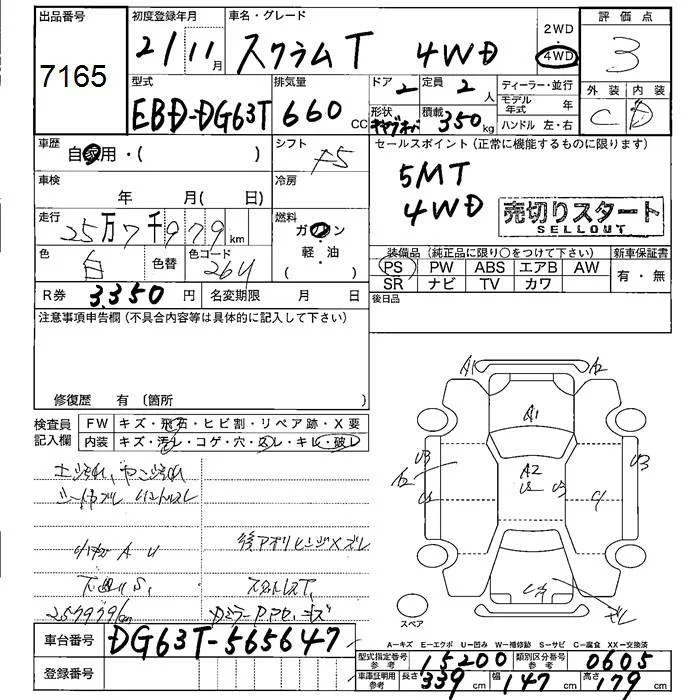 出品番号
7165
初度登録年月
21/11月
車名・グレード
スクラムT 4WD
2WD
・
4WD
評価点
3
外装 内装
C D
型式
EBD-DG63T
排気量
660 CC
ドア 2
定員 2人
形状
積載 350kg
ディーラー・並行
モデル年式 年
ハンドル 左・右
車歴
自家用・( )
シフト F5
セールスポイント(正常に機能するものに限ります)
5MT
4WD
売切りスタート
SELLOUT
車検
年 月( 日)
冷房
走行
25万7千979km
燃料
ガソリン
軽・油
( )
色
白
色替
色コード
26U
装備品(純正品に限り○をつけて下さい)
新車保証書
PS PW ABS エアB AW
SR ナビ TV カワ
有・無
R券 3,350円
名変期限 月 日
後日品
注意事項申告欄(不具合内容等は具体的に記入して下さい)
修復歴 有(箇所 )
検査員
記入欄
FW キズ・飛石・ヒビ割・リペア跡・X要
内装 キズ・汚レ・コゲ・穴・スレ・キレ・破レ
257979km
A1 A2
A1
U3 A2 U3
A2 U
スペア
A=キズ E=エクボ U=凹み W=補修跡 S=サビ C=腐食 XX=交換済
車台番号 DG63T-565647
登録番号
型式指定番号 参考 15200
類別区分番号 参考 0605
車庫証明用 参考 長さ 339cm 幅 147cm 高さ 179cm